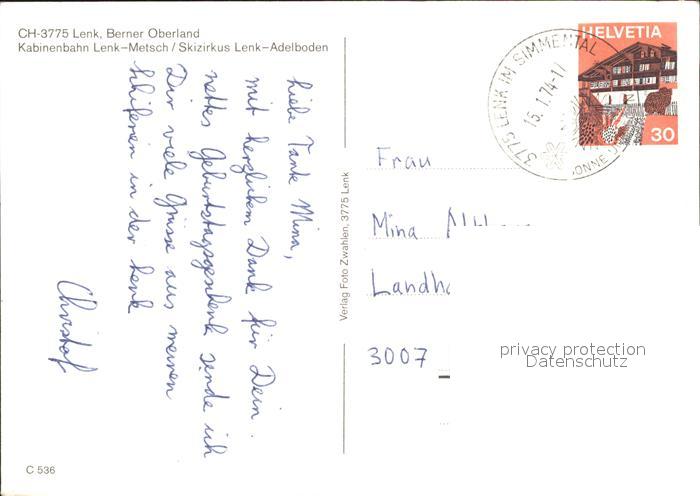 CH-3775 Lenk, Berner Oberland
Kabinenbahn Lenk–Metsch / Skizirkus Lenk–Adelboden
Liebe Tante Minn,
mit herzlichem Dank für Dein
nettes Geburtstagsgeschenk sende ich
Dir viele Grüsse aus meinen
Schiferien in der Lenk
Christof
C 536
Verlag Foto Zwahlen, 3775 Lenk
HELVETIA
30
3775 LENK IM SIMMENTAL
15.1.74-11
Frau
Mina
Landh
3007
privacy protection
Datenschutz